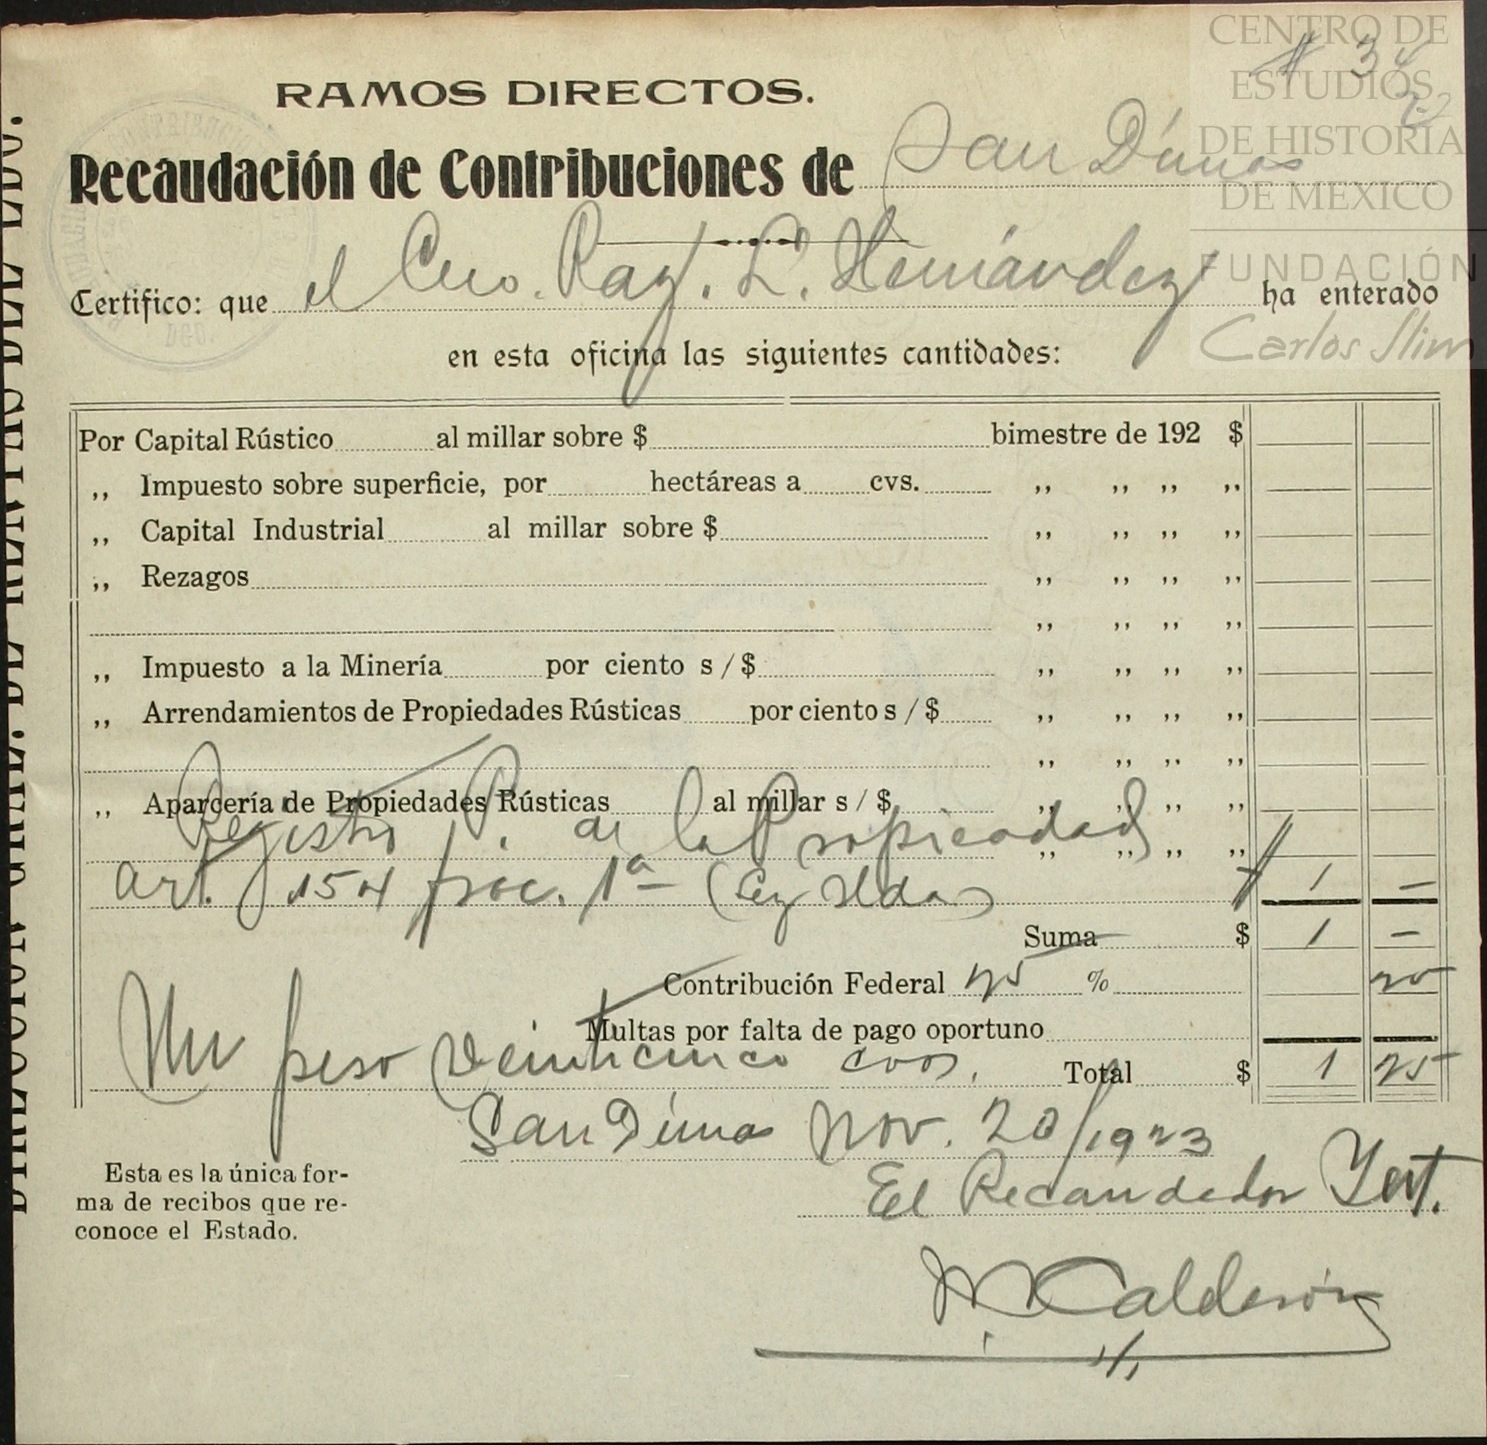 CENTRO DE
ESTUDIOS
DE HISTORIA
DE MEXICO
FUNDACIÓN
Carlos Slim
# 34
RAMOS DIRECTOS.
Recaudación de Contribuciones de San Dimas
Certifico: que el Cno. Raf. L. Hernández ha enterado
en esta oficina las siguientes cantidades:
Por Capital Rústico al millar sobre $ bimestre de 192 $
,, Impuesto sobre superficie, por hectáreas a cvs. ,, ,, ,, ,,
,, Capital Industrial al millar sobre $ ,, ,, ,, ,,
,, Rezagos ,, ,, ,, ,,
,, ,, ,, ,,
,, Impuesto a la Minería por ciento s/$ ,, ,, ,, ,,
,, Arrendamientos de Propiedades Rústicas por ciento s/$ ,, ,, ,, ,,
,, ,, ,, ,,
,, Aparcería de Propiedades Rústicas al millar s/$ ,, ,, ,, ,,
Registro P. de la Propiedad ,, ,, ,, ,,
art. 154 frac. 1ª (Ley Hda) $ 1 –
Suma $ 1 –
Contribución Federal 25 % 25
Multas por falta de pago oportuno
Un peso veinticinco cvos. Total $ 1 25
San Dimas Nov. 20/1923
El Recaudador
M Calderón
Esta es la única for-
ma de recibos que re-
conoce el Estado.
DIRECCION GRAL. DE RENTAS DEL EDO.
DGO.